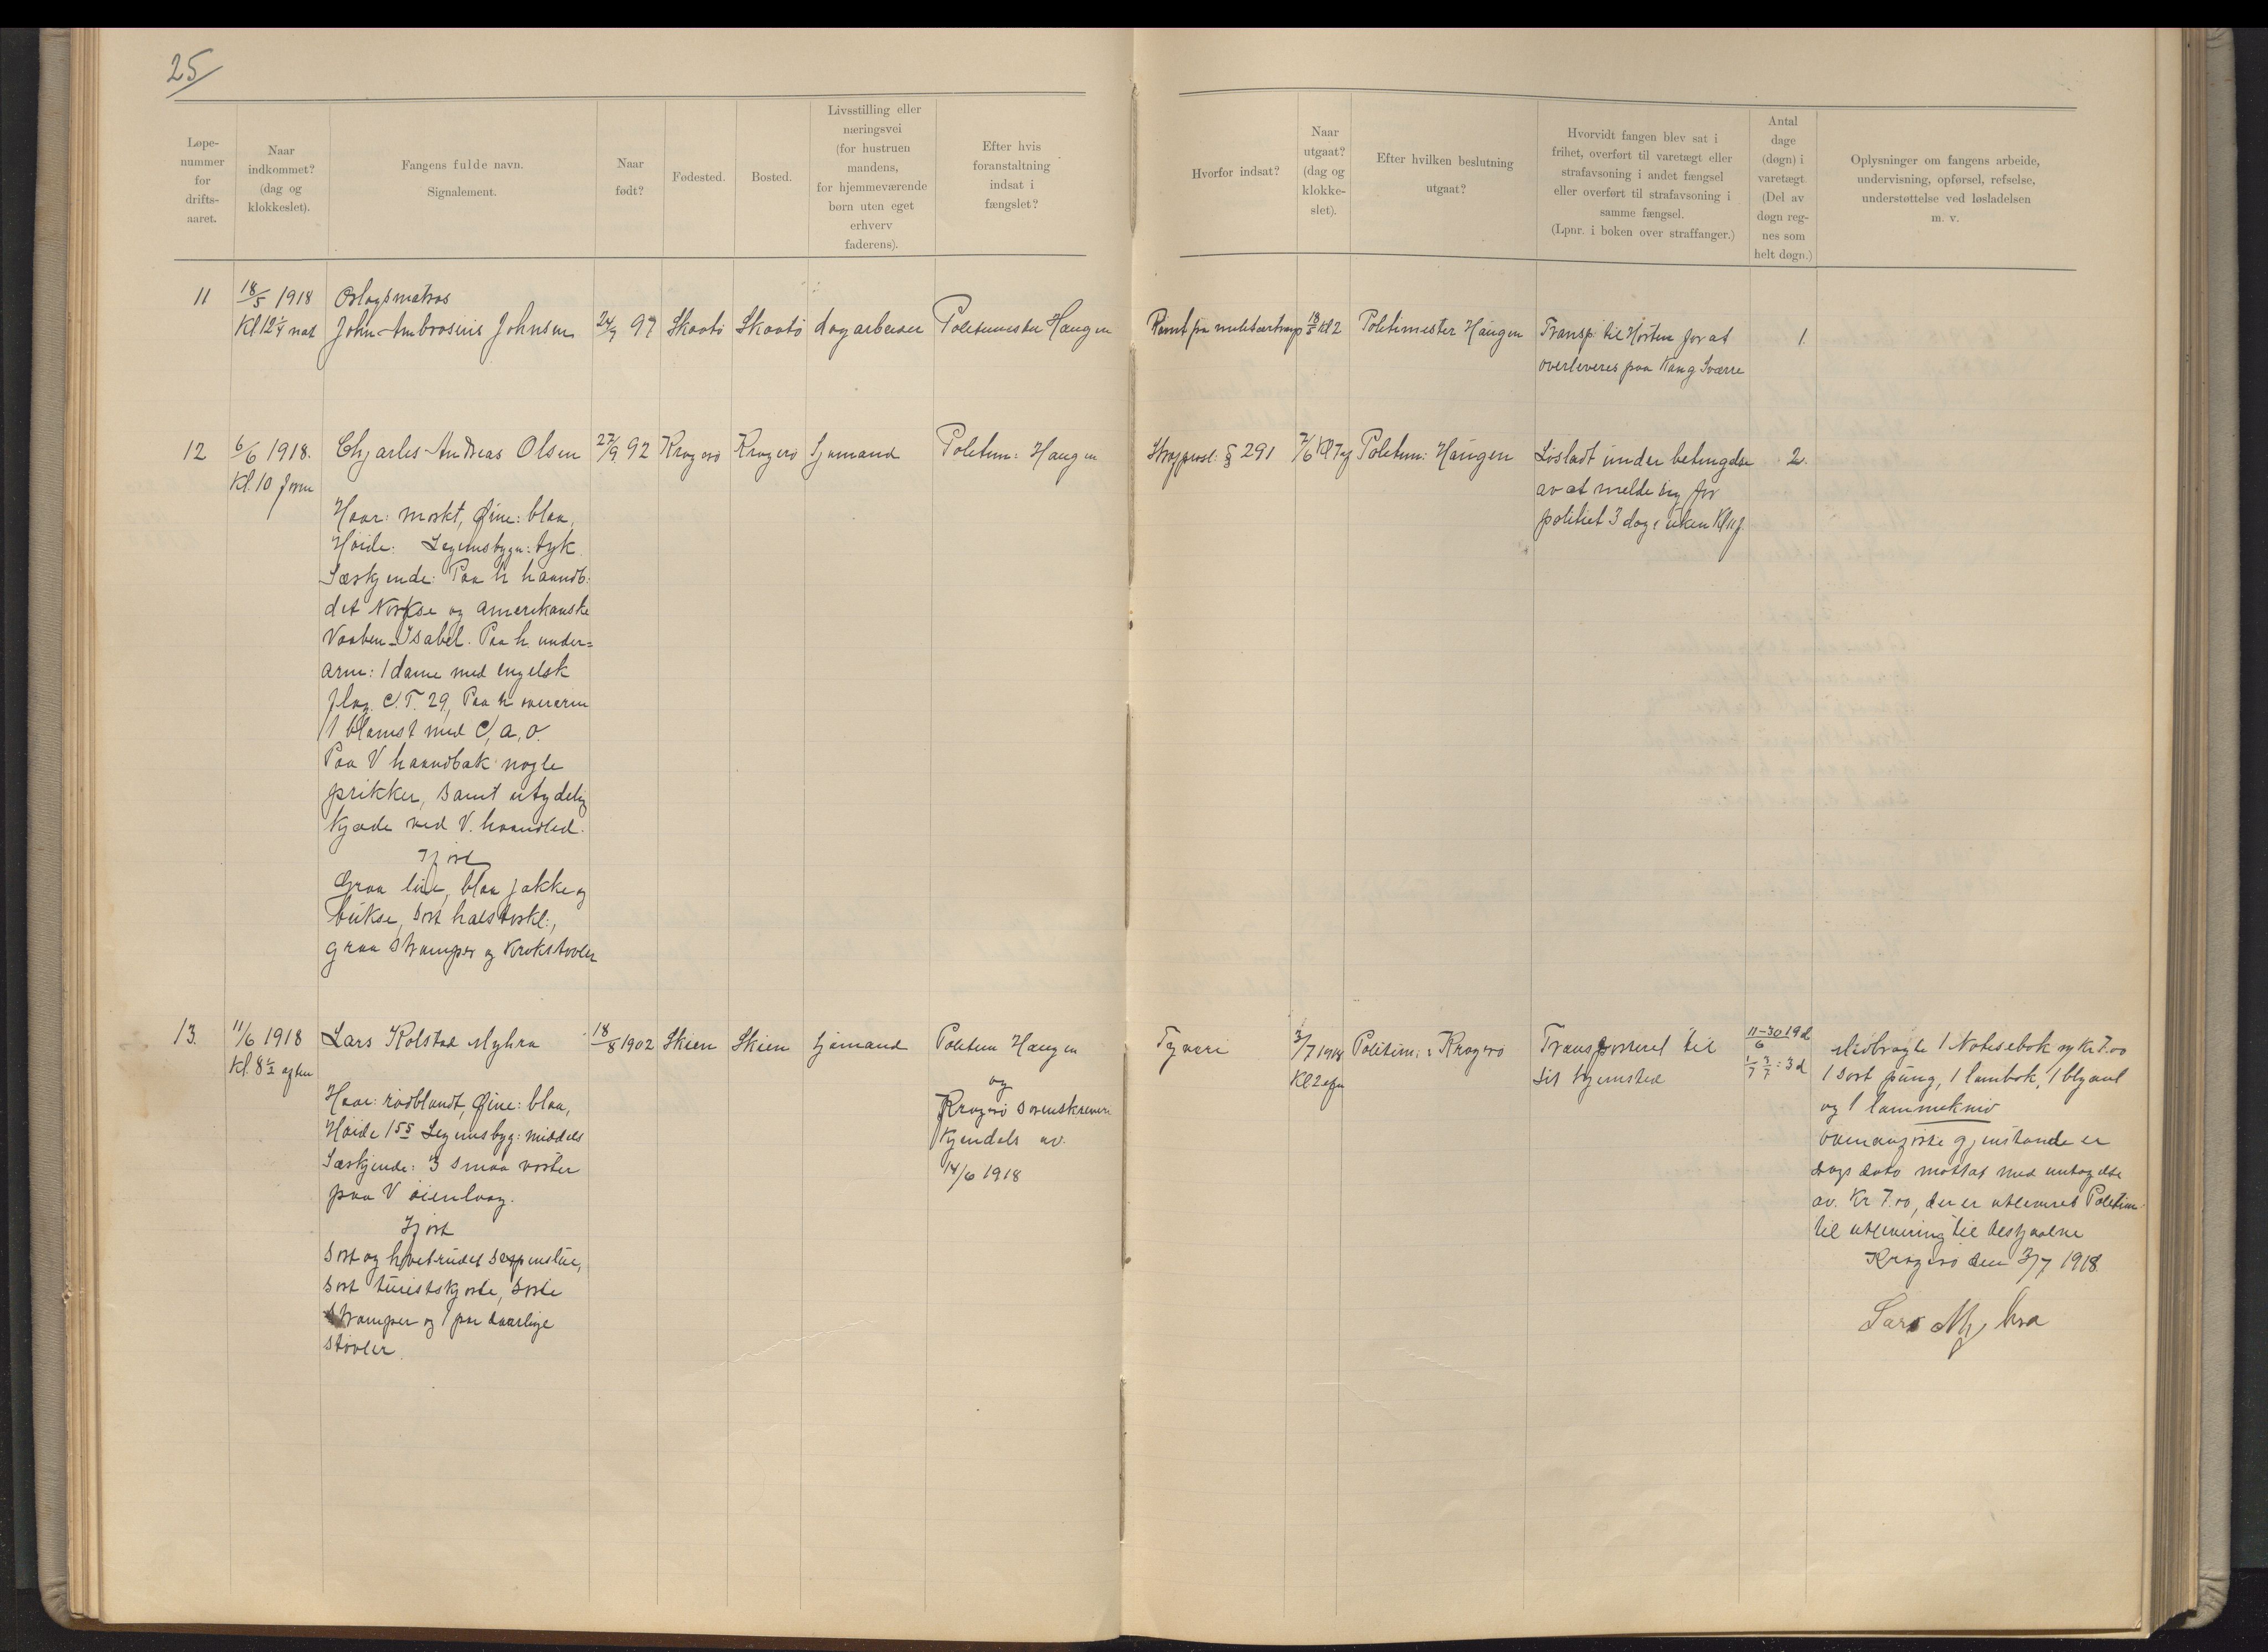 25
Løpe-
nummer
for
drifts-
aaret.
Naar
indkommet?
(dag og
klokkeslet).
Fangens fulde navn.
Signalement.
Naar
født?
Fødested.
Bosted.
Livsstilling eller
næringsvei
(for hustruen
mandens,
for hjemmeværende
børn uten eget
erhverv
faderens).
Efter hvis
foranstaltning
indsat i
fængslet?
Hvorfor indsat?
Naar
utgaat?
(dag og
klokke-
slet).
Efter hvilken beslutning
utgaat?
Hvorvidt fangen blev sat i
frihet, overført til varetægt eller
strafavsoning i andet fængsel
eller overført til strafavsoning i
samme fængsel.
(Lpnr. i boken over straffanger.)
Antal
dage
(døgn) i
varetægt
(Del av
døgn reg-
nes som
helt døgn.)
Oplysninger om fangens arbeide,
undervisning, opførsel, refselse,
understøttelse ved løsladelsen
m. v.
11
18/5 1918
Kl 12¼ nat
Orlogsmatros
John Ambrosius Johnsen
24/9 97
Skaatø
Skaatø
dagarbeider
Politimester Haugen
Rømt fra
18/5 Kl 2
Politimester Haugen
Transp. til Horten for at
overleveres paa Kong Sværre
1
12
6/6 1918.
Kl. 10 form
Chjarles Andreas Olsen
27/9 92
Kragerø
Kragerø
Sjømand
Politim: Haugen
Straffeprosl: § 291
7/6 Kl 7
Politim: Haugen
Løsladt under betingelse
av at melde sig for
politiet 3 dag i uken Kl 11 f.
2.
Haar: mørkt, Øine: blaa,
Høide: Legemsbygn: tyk
Særkjende: Paa h haandb:
det Norkse og amerikanske
Vaaben - Isabel. Paa h. under=
arm: 1 dame med engelsk
flag. C. T. 29, Paa h overarm
1 blomst med C, a, o.
Paa V haandbak nogle
prikker, samt utydelig
kjæde ved V. haandled.
Iført
Graa lue, blaa jakke og
bukse, sort halstørkl:,
graa strømper og krokstøvler
13.
11/6 1918
Kl. 8½ aften
Lars Kolstad Myhra
18/8 1902
Skien
Skien
Sjømand
Politim Haugen
og
Kragerø sorenskriveri
kjendels av.
14/6 1918
Tyveri
3/7 1918
Kl 2 efm
Politim: i Kragerø
Transporteret til
sit hjemsted
11-30/6 19 d
1/7 3/7 : 3 d
Haar: rødblondt, Øine: blaa,
Høide 155 Legemsbyg: middels
Særkjende: 3 smaa vorter
paa V øienlaag.
Iført
Sort og hvitrudet sexpenslue,
sort turistskjorte, sorte
strømper og 1 par daarlige
støvler.
Medbragte 1 Notisebok og Kr 7.00
1 sort pung, 1 lommbok, 1 blyant
og 1 lommekniv
ovenanførte gjenstande er
dags dato mottat med undtagelse
av. Kr 7.00, der er utleveret Politim:
til utlevering til bestjaalne
Kragerø den 3/7 1918.
Lars Myhra